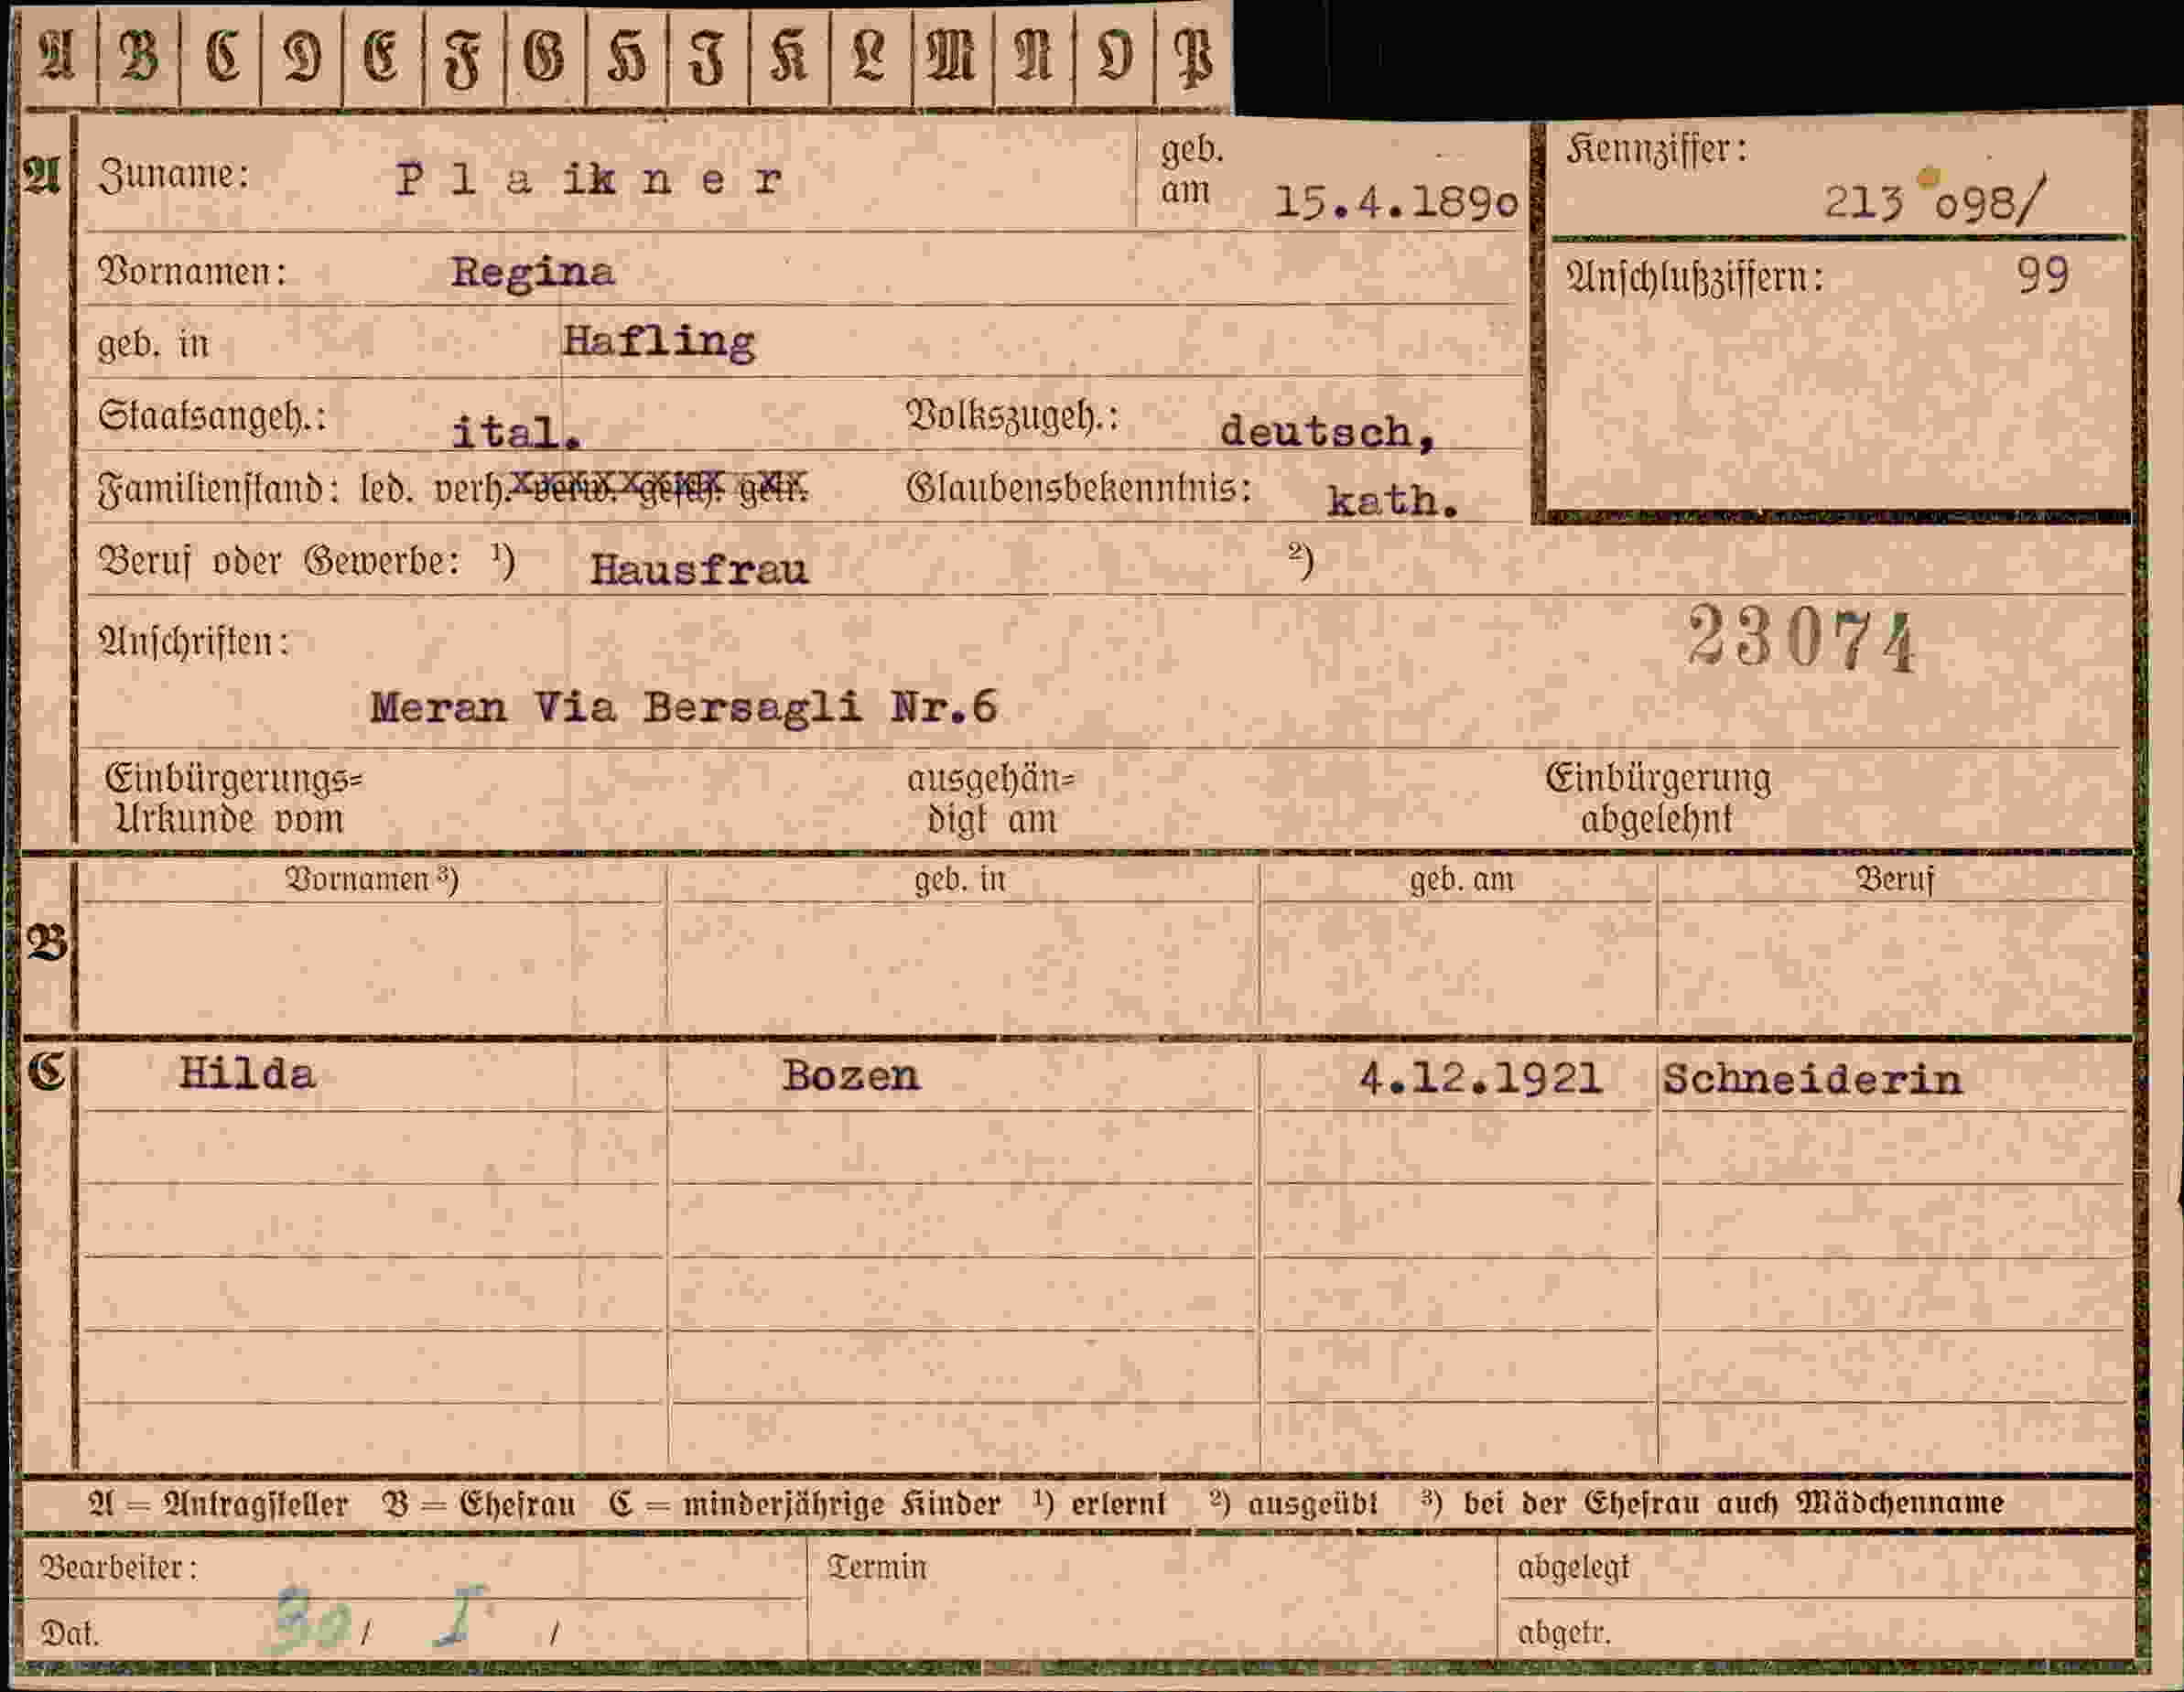 A B C D E F G H J K L M N O P
A Zuname: Plaikner geb. am 15.4.1890 Kennziffer: 213 o98/
Vornamen: Regina Anschlußziffern: 99
geb. in Hafling
Staatsangeh.: ital. Volkszugeh.: deutsch,
Familienstand: led. verh. verw. gesch. getr. Glaubensbekenntnis: kath.
Beruf oder Gewerbe: ¹) Hausfrau ²)
Anschriften: 23074
Meran Via Bersagli Nr.6
Einbürgerungs- ausgehän- Einbürgerung
Urkunde vom digt am abgelehnt
Vornamen ³) geb. in geb. am Beruf
B
C Hilda Bozen 4.12.1921 Schneiderin
A = Antragsteller B = Ehefrau C = minderjährige Kinder ¹) erlernt ²) ausgeübt ³) bei der Ehefrau auch Mädchenname
Bearbeiter: Termin abgelegt
Dat. 30 / I / abgetr.